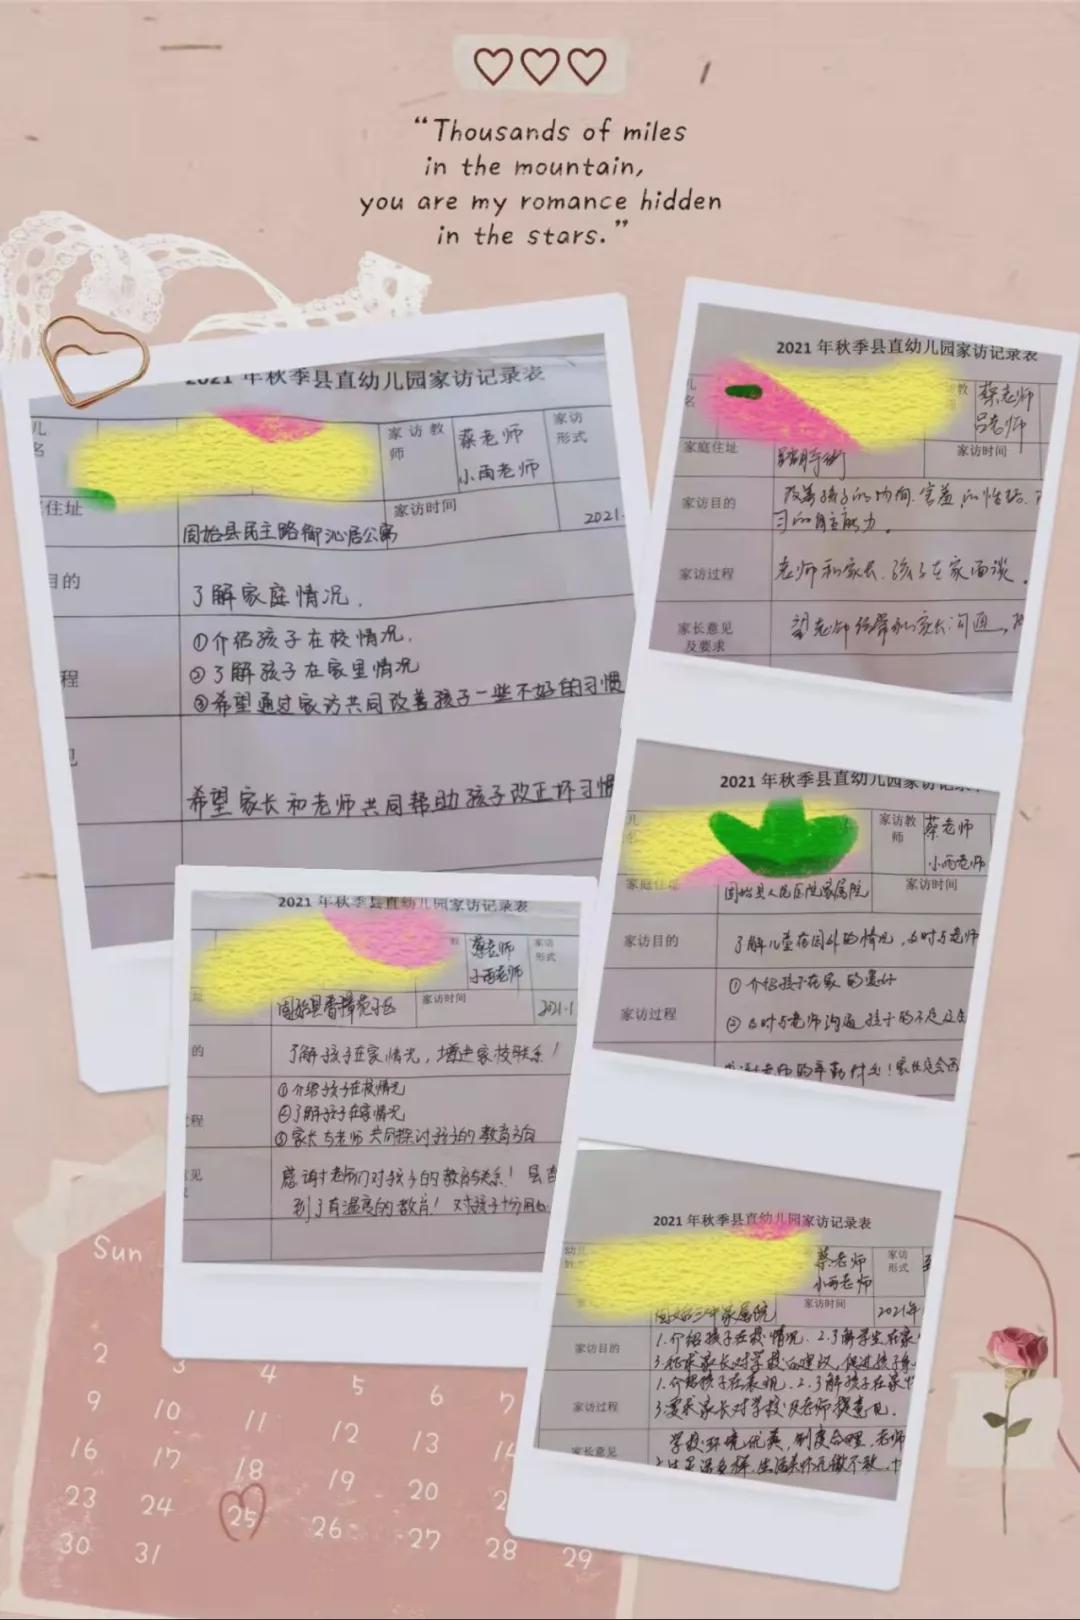 “Thousands of miles
in the mountain,
you are my romance hidden
in the stars.”
2021 年秋季县直幼儿园家访记录表
儿
名
家访教
师
蔡老师
小雨老师
家访
形式
住址
固始县民主路御沁居公寓
家访时间
2021.
目的
了解家庭情况.
程
①介绍孩子在校情况.
②了解孩子在家里情况
③希望通过家访共同改善孩子一些不好的习惯
见
希望家长和老师共同帮助孩子改正坏习惯
2021 年秋季县直幼儿园家访记录表
儿
名
教
蔡老师
吕老师
家庭住址
家访时间
家访目的
改善孩子的
习的自主能力。
家访过程
老师和家长、孩子在家面谈.
家长意见
及要求
望老师经常和家长沟通,
2021 年秋季县直幼儿园家访记录
儿
家访教
师
蔡老师
小雨老师
家庭住址
固始县人民医院家属院
家访时间
家访目的
了解儿童在园外的情况,及时与老师
家访过程
①介绍孩子在家的
②及时与老师沟通孩子的不足
2021 年秋季县直幼儿园家访记录表
教
蔡老师
小雨老师
家访
形式
址
固始县香樟苑小区
家访时间
2021.1
的
了解孩子在家情况,增进家校联系!
程
①介绍孩子在校情况
②了解孩子在家情况
③家长与老师共同探讨孩子的教育方向
见
感谢老师们对孩子的教育与关系!
到了有温度的教育!对孩子十分用心
2021 年秋季县直幼儿园家访记录表
幼儿
蔡老师
小雨老师
家访
形式
家属院
家访时间
2021年
家访目的
1.介绍孩子在校情况.2.了解学生在家
3.征求家长对学校的建议,促进孩子
家访过程
1.介绍孩子在校表现.2.了解孩子在家
3.要求家长对学校及老师提意见.
家长意见
学校环境优美,制度合理,老师
Sun
2 3 4 5 6 7
9 10 11 12 13 14
16 17 18 19 20 2
23 24 25 26 27 28 29
30 31